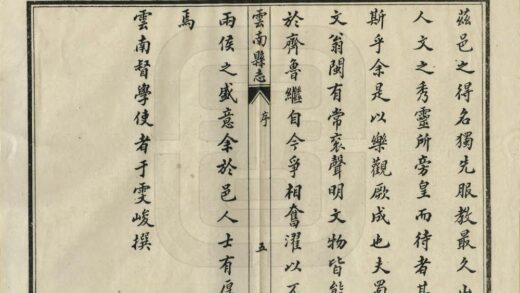 茲邑之得名獨先服教最久山
人文之秀靈所旁皇而待者其
斯乎余是以樂觀厥成也夫蜀
文翁閩有常袞聲明文物皆能
於齊魯繼自今爭相奮濯以不
雲南縣志
序
五
兩侯之盛意余於邑人士有厚
焉
雲南督學使者于雯峻撰